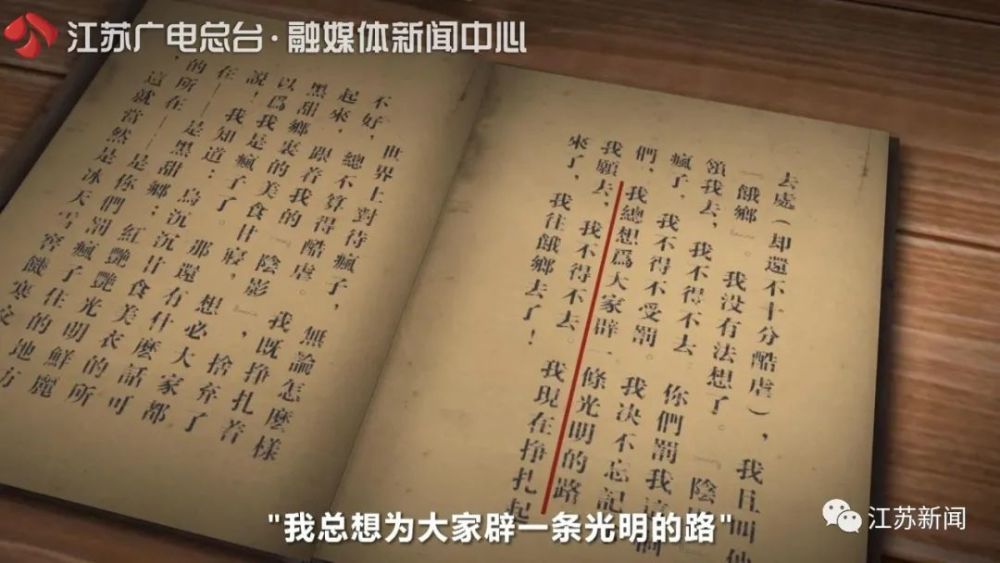 江苏广电总台·融媒体新闻中心
世界上對待瘋子，無論怎麼樣
不好，總不算得酷虐。我既掙扎着
起來，跟着我的『陰影』，捨弃了
黑甜鄉裏的美食甘寢，想必大家都
以爲我是瘋子了。那還有什麼話可
說！我知道：烏沉沉甘食美衣的所
在——是黑甜鄉；紅艷艷光明鮮麗
的所在——是你們罰瘋子住的地方
，這就當然是冰天雪窖餓寒交
去處（却還不十分酷虐），我且叫他
『餓鄉』。我没有法想了。『陰
領我去，我不得不去。你們罰我這個
瘋子，我不得不受罰。我決不忘記
們，我總想爲大家辟一條光明的路
我願去，我不得不去。我現在掙扎起
來了，我往餓鄉去了！
"我总想为大家辟一条光明的路"
江苏新闻